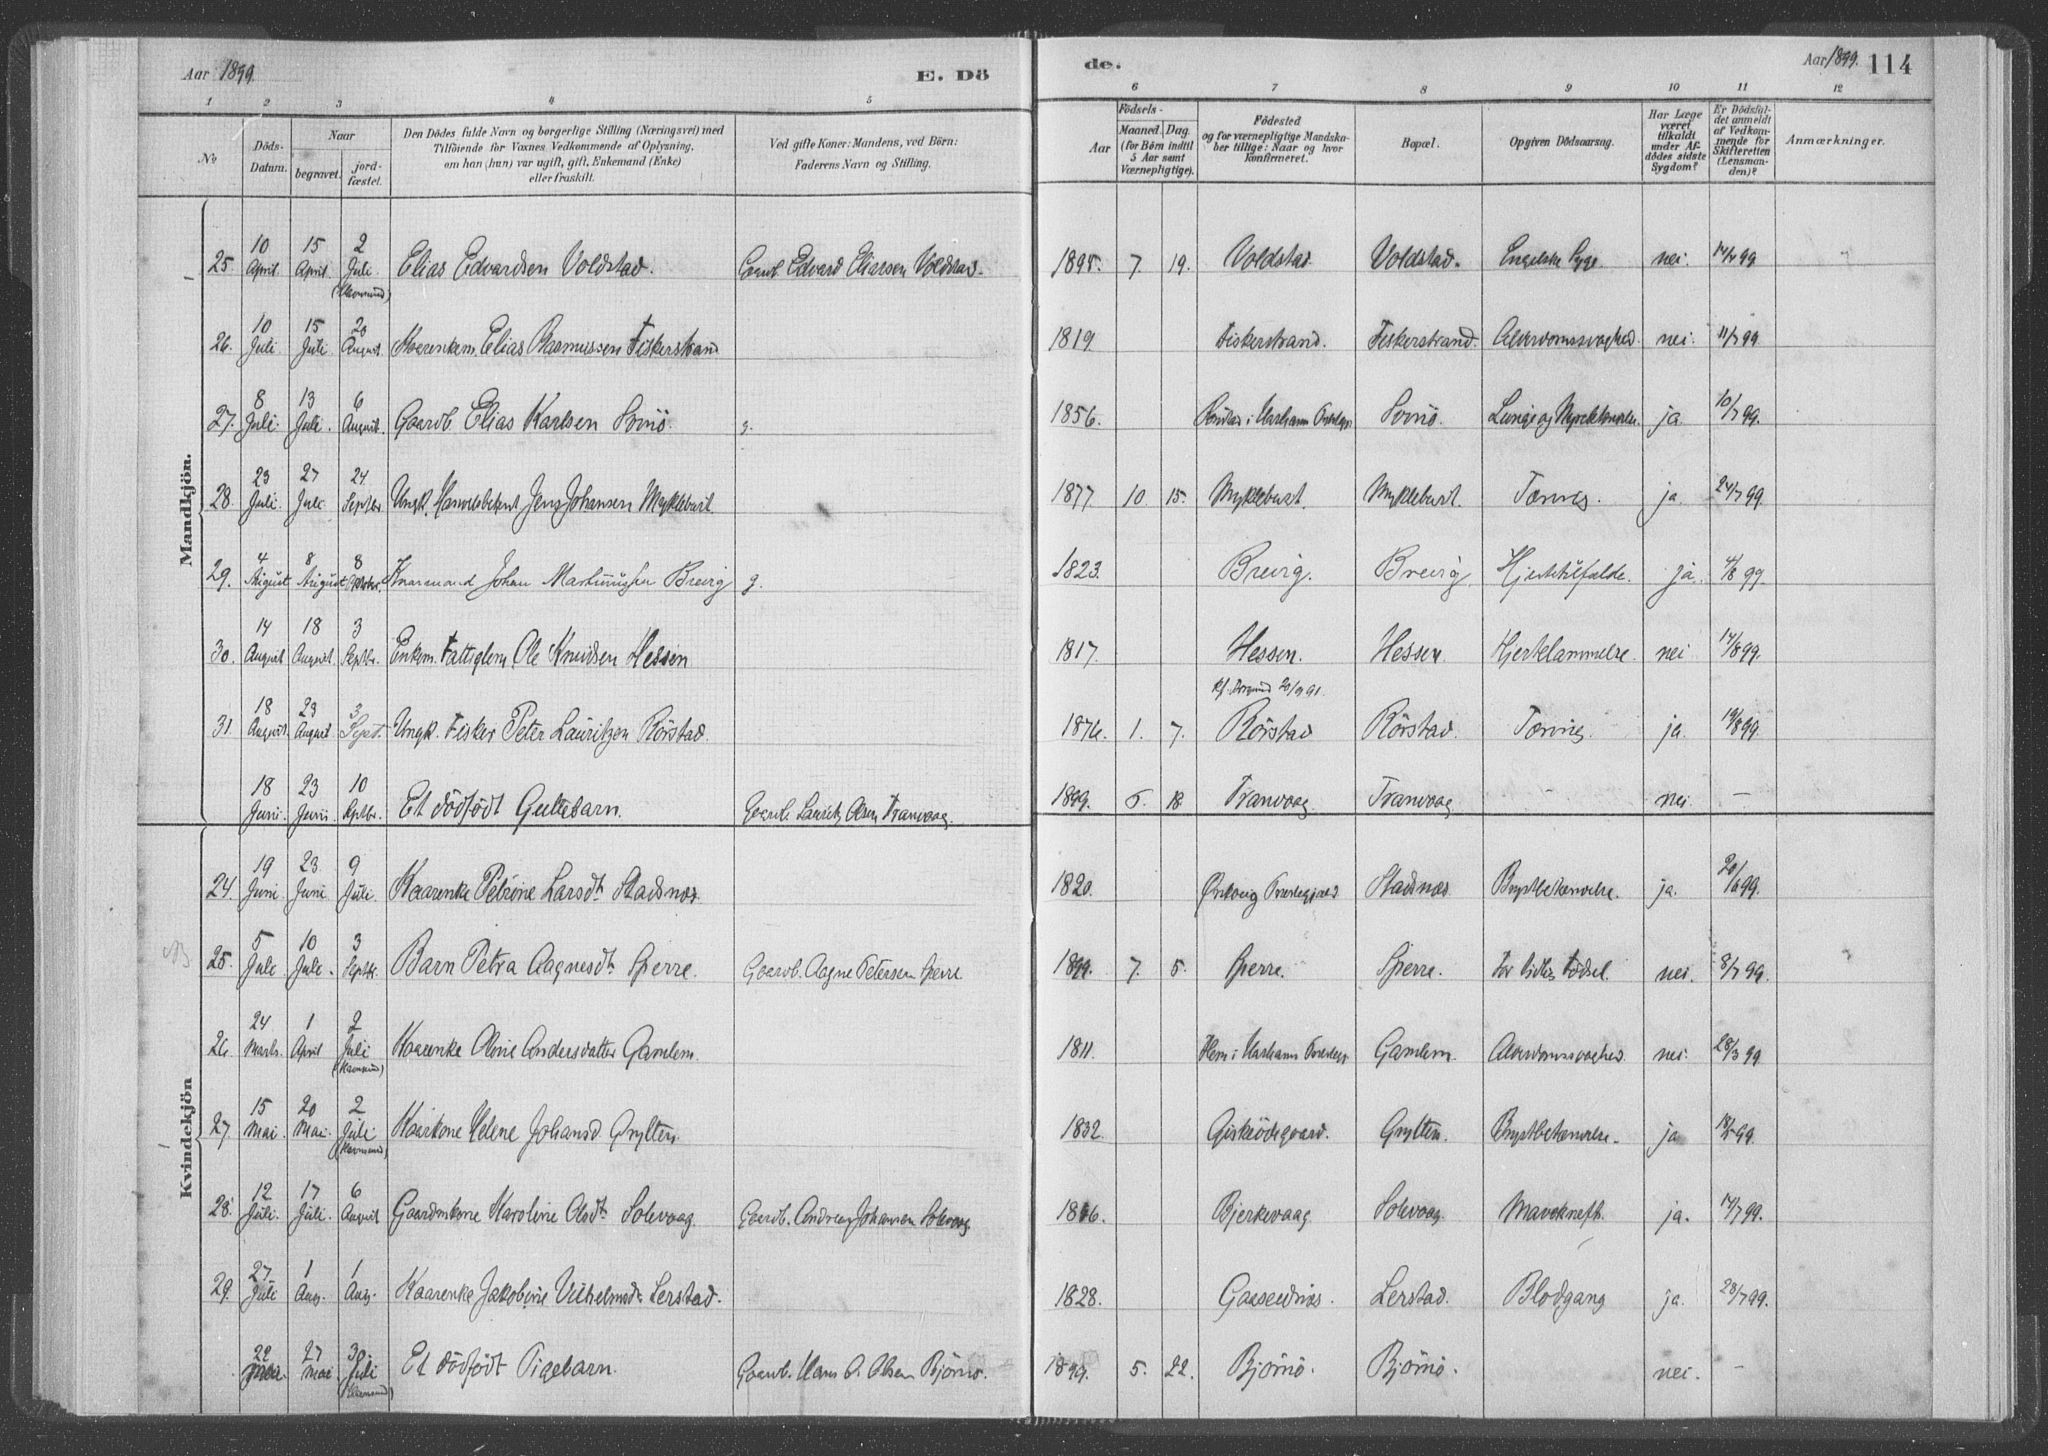 Aar 1899.
E. Dö
de.
Aar 1899. 114
1 2 3 4 5
6 7 8 9 10 11 12
No
Döds-Datum.
Naar
begravet.
jord-fæstet.
Den Dödes fulde Navn og borgerlige Stilling (Næringsvei) med
Tilföiende for Voxnes Vedkommende af Oplysning,
om han (hun) var ugift, gift, Enkemand (Enke)
eller fraskilt.
Ved gifte Koner: Mandens, ved Börn:
Faderens Navn og Stilling.
Födsels-
Aar
Maaned. Dag.
(for Börn indtil
5 Aar samt
Værnepligtige).
Födested
og for værnepligtige Mandska-
ber tillige: Naar og hvor
Konfirmeret.
Bopæl.
Opgiven Dödsaarsag.
Har Læge
været
tilkaldt
under Af-
dödes sidste
Sygdom?
Er Dödsfal-
det anmeldt
af Vedkom-
mende for
Skifteretten
(Lensman-
den)?
Anmærkninger.
Mandkjön.
25. 10 April. 15 April. 2 Juli. Elias Edvardsen Voldstad. Gaardb. Edvard Eliassen Voldstad. 1895. 7. 19. Voldstad Voldstad. Engelske Syge. nei. 14/4 99
26. 10 Juli 15 Juli 20 August. Kaarenkem. Elias Rasmussen Fiskerstrand 1819 Fiskerstrand. Fiskerstrand. Alderdomssvaghed. nei. 11/7 99
27. 8 Juli. 13 Juli. 6 August. Gaardb. Elias Karlsen Sornö. g. 1856. i Harhams Præstegj. Sornö. Lunge og ja. 10/7 99.
28. 23 Juli. 27 Juli 24 Septbr Ungk. Handelsbetjent Jens Johansen Myklebust. 1877 10. 15. Myklebust. Myklebust. Tæring. ja. 24/7 99.
29. 4 August. 8 August 8 Oktober. Kaarmand Johan Martinussen Breivig g. 1823. Breivig. Breivig. Hjertetilfælde. ja. 4/8 99
30. 14 August 18 August. 3 Septbr. Enkem. Fattiglem. Ole Knudsen Hessen 1817. Hessen. Hessen. Hjertelammelse. nei 14/8 99.
31. 18 August. 23 August 3 Sept. Ungk. Fisker Peter Lauritzen Rörstad. 1876. 1. 7. Rörstad Rörstad. Tæring. ja. 19/8 99.
18 Juni. 23 Juni 10 Septbr. Et dödfödt Guttebarn. Gaardb. Laurits Olsen Tranvaag. 1899. 6. 18 Tranvaag Tranvaag - nei. -
Kvindekjön
24. 19 Juni. 23 Juni. 9 Juli. Kaarenke Petrine Larsdt. Stadsnæs. 1820. Ørskoug Præstegjæld Stadsnæs. Brystbetændelse. ja. 20/6 99.
25. 5 Juli 10 Juli. 3 Septbr. Barn Petra Aagnesdt. Spierre. Gaardb. Aagne Petersen Spierre 1899. 7. 5. Spierre. Spierre. For tidlig Födsel. nei. 8/7 99.
26. 24 Marts. 1 April 2 Juli Kaarenke Oline Andersdatter Gamlem. 1811. Hem i Harhams Præstegj. Gamlem. Alderdomssvaghed. nei. 28/3 99
27. 15 Mai. 20 Mai. 2 Juli Kaarkone Helene Johansd Grytten. 1832. Gisködegaard. Grytten. Brystbetændelse. ja 18/5 99.
28. 12 Juli. 17 Juli. 6 August Gaardmkone Karoline Olsdt. Solevaag. Gaardb. Andreas Johansen Solevaag 1866. Bjerkevaag Solevaag. Mavekræft. ja. 14/7 99.
29. 27 Juli 1 Aug. 1 Aug. Kaarenke Jakobine Vilhelmsdt. Lerstad. 1828. Gaaseidnæs. Lerstad. Blodgang ja. 28/7 99.
22 Mai. 27 Mai. 30 Juli Et dödfödt Pigebarn. Gaardb. Hans O. Olsen Björnö. 1899. 5. 22. Björnö. Björnö. nei. -